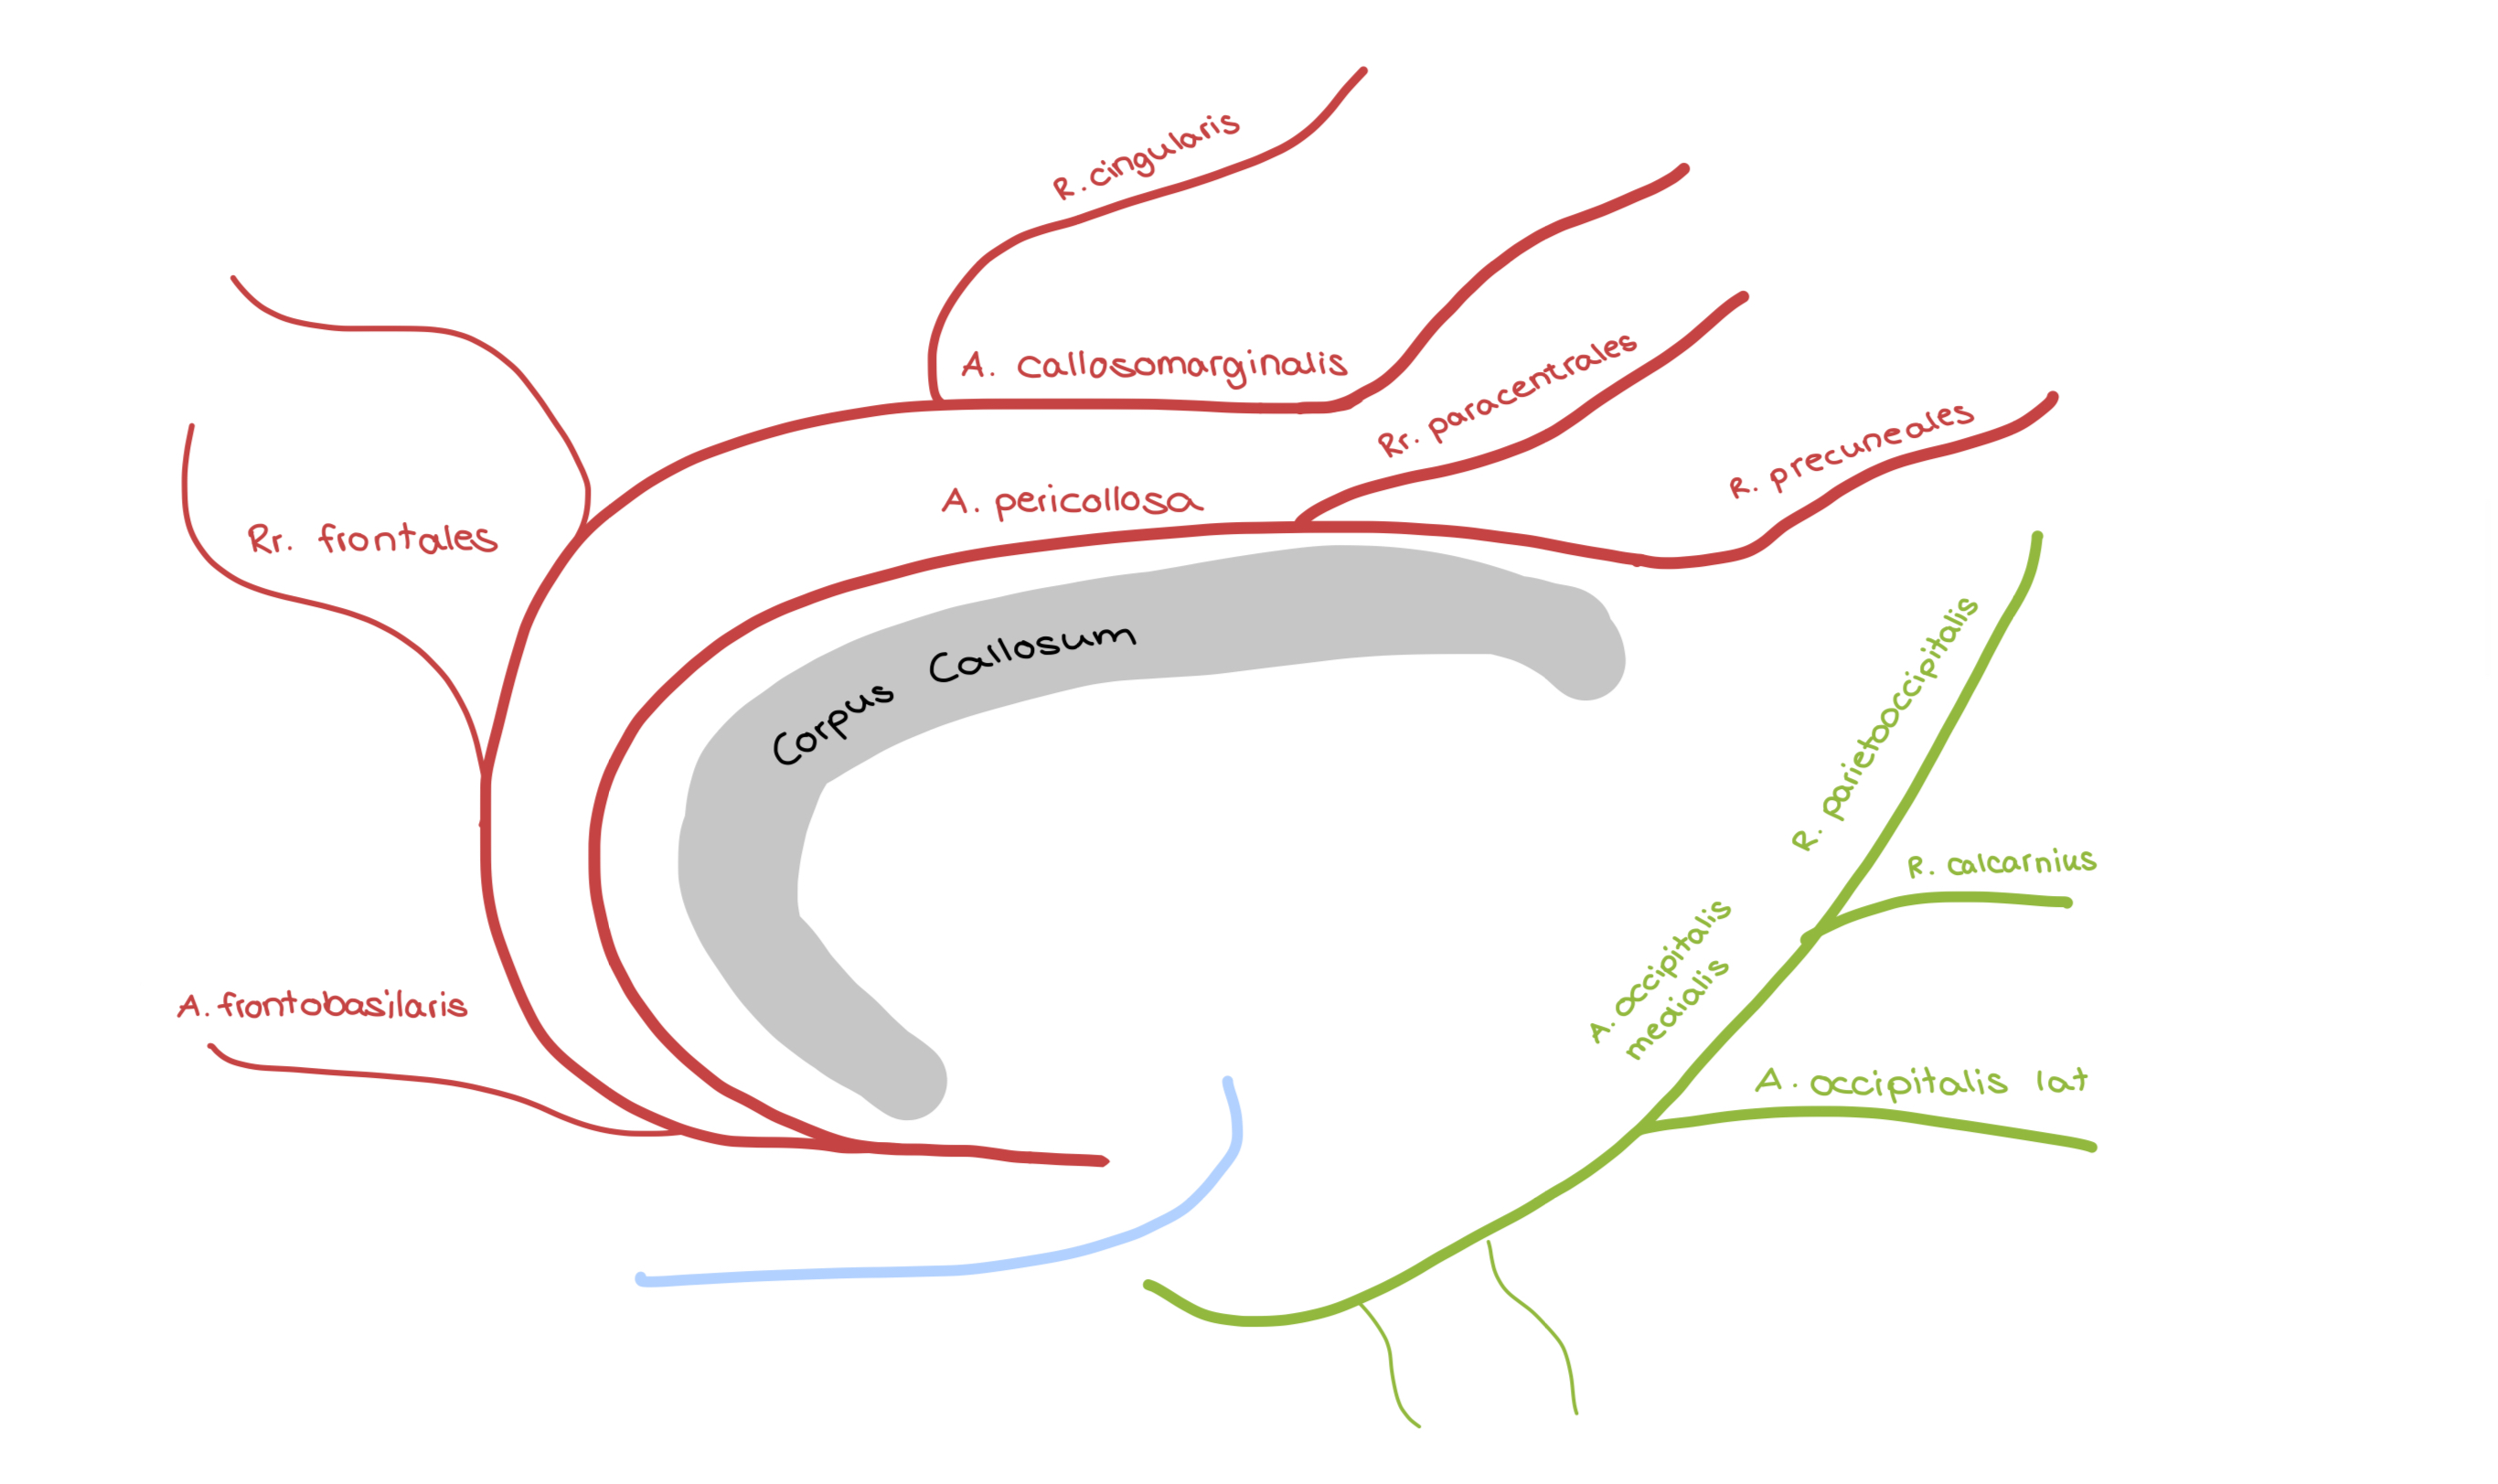 R. cingularis
A. Callosomarginalis
Rr. paracentrales
R. precuneales
A. pericallosa
Rr. frontales
Corpus Callosum
R. parietooccipitalis
R. calcarnius
A. occipitalis
medialis
A. frontobasilaris
A. occipitalis lat